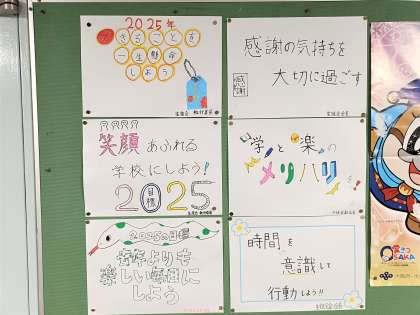 2025年
できることを
一生懸命
しよう
感謝の気持ちを
大切に過ごす
感謝
笑顔あふれる
学校にしよう!
2025
目標
学と楽の
メリハリ
2025の目標
去年よりも
楽しい毎日に
しよう
時間を
意識して
行動しよう!!
OSAKA